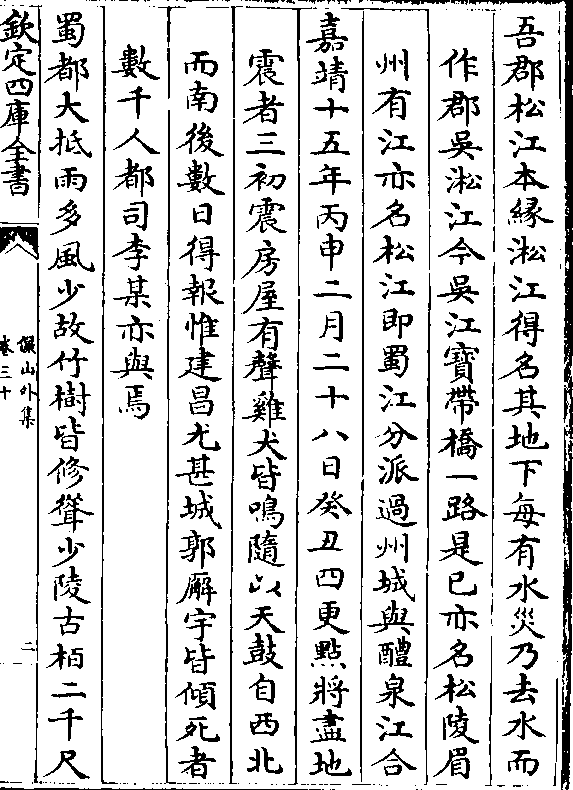 吾郡松江本緣淞江得名其地下每有水災乃去水而
作郡吳淞江今吳江寶帶橋一路是已亦名松陵眉
州有江亦名松江即蜀江分派過州城與醴泉江合
嘉靖十五年丙申二月二十八日癸丑四更點將盡地
震者三初震房屋有聲雞犬皆鳴隨以天鼓自西北
而南後數日得報惟建昌尤甚城郭廨宇皆傾死者
數千人都司李某亦與焉
蜀都大抵雨多風少故竹樹皆修聳少陵古栢二千尺
欽定四庫全書
儼山外集
卷三十
二